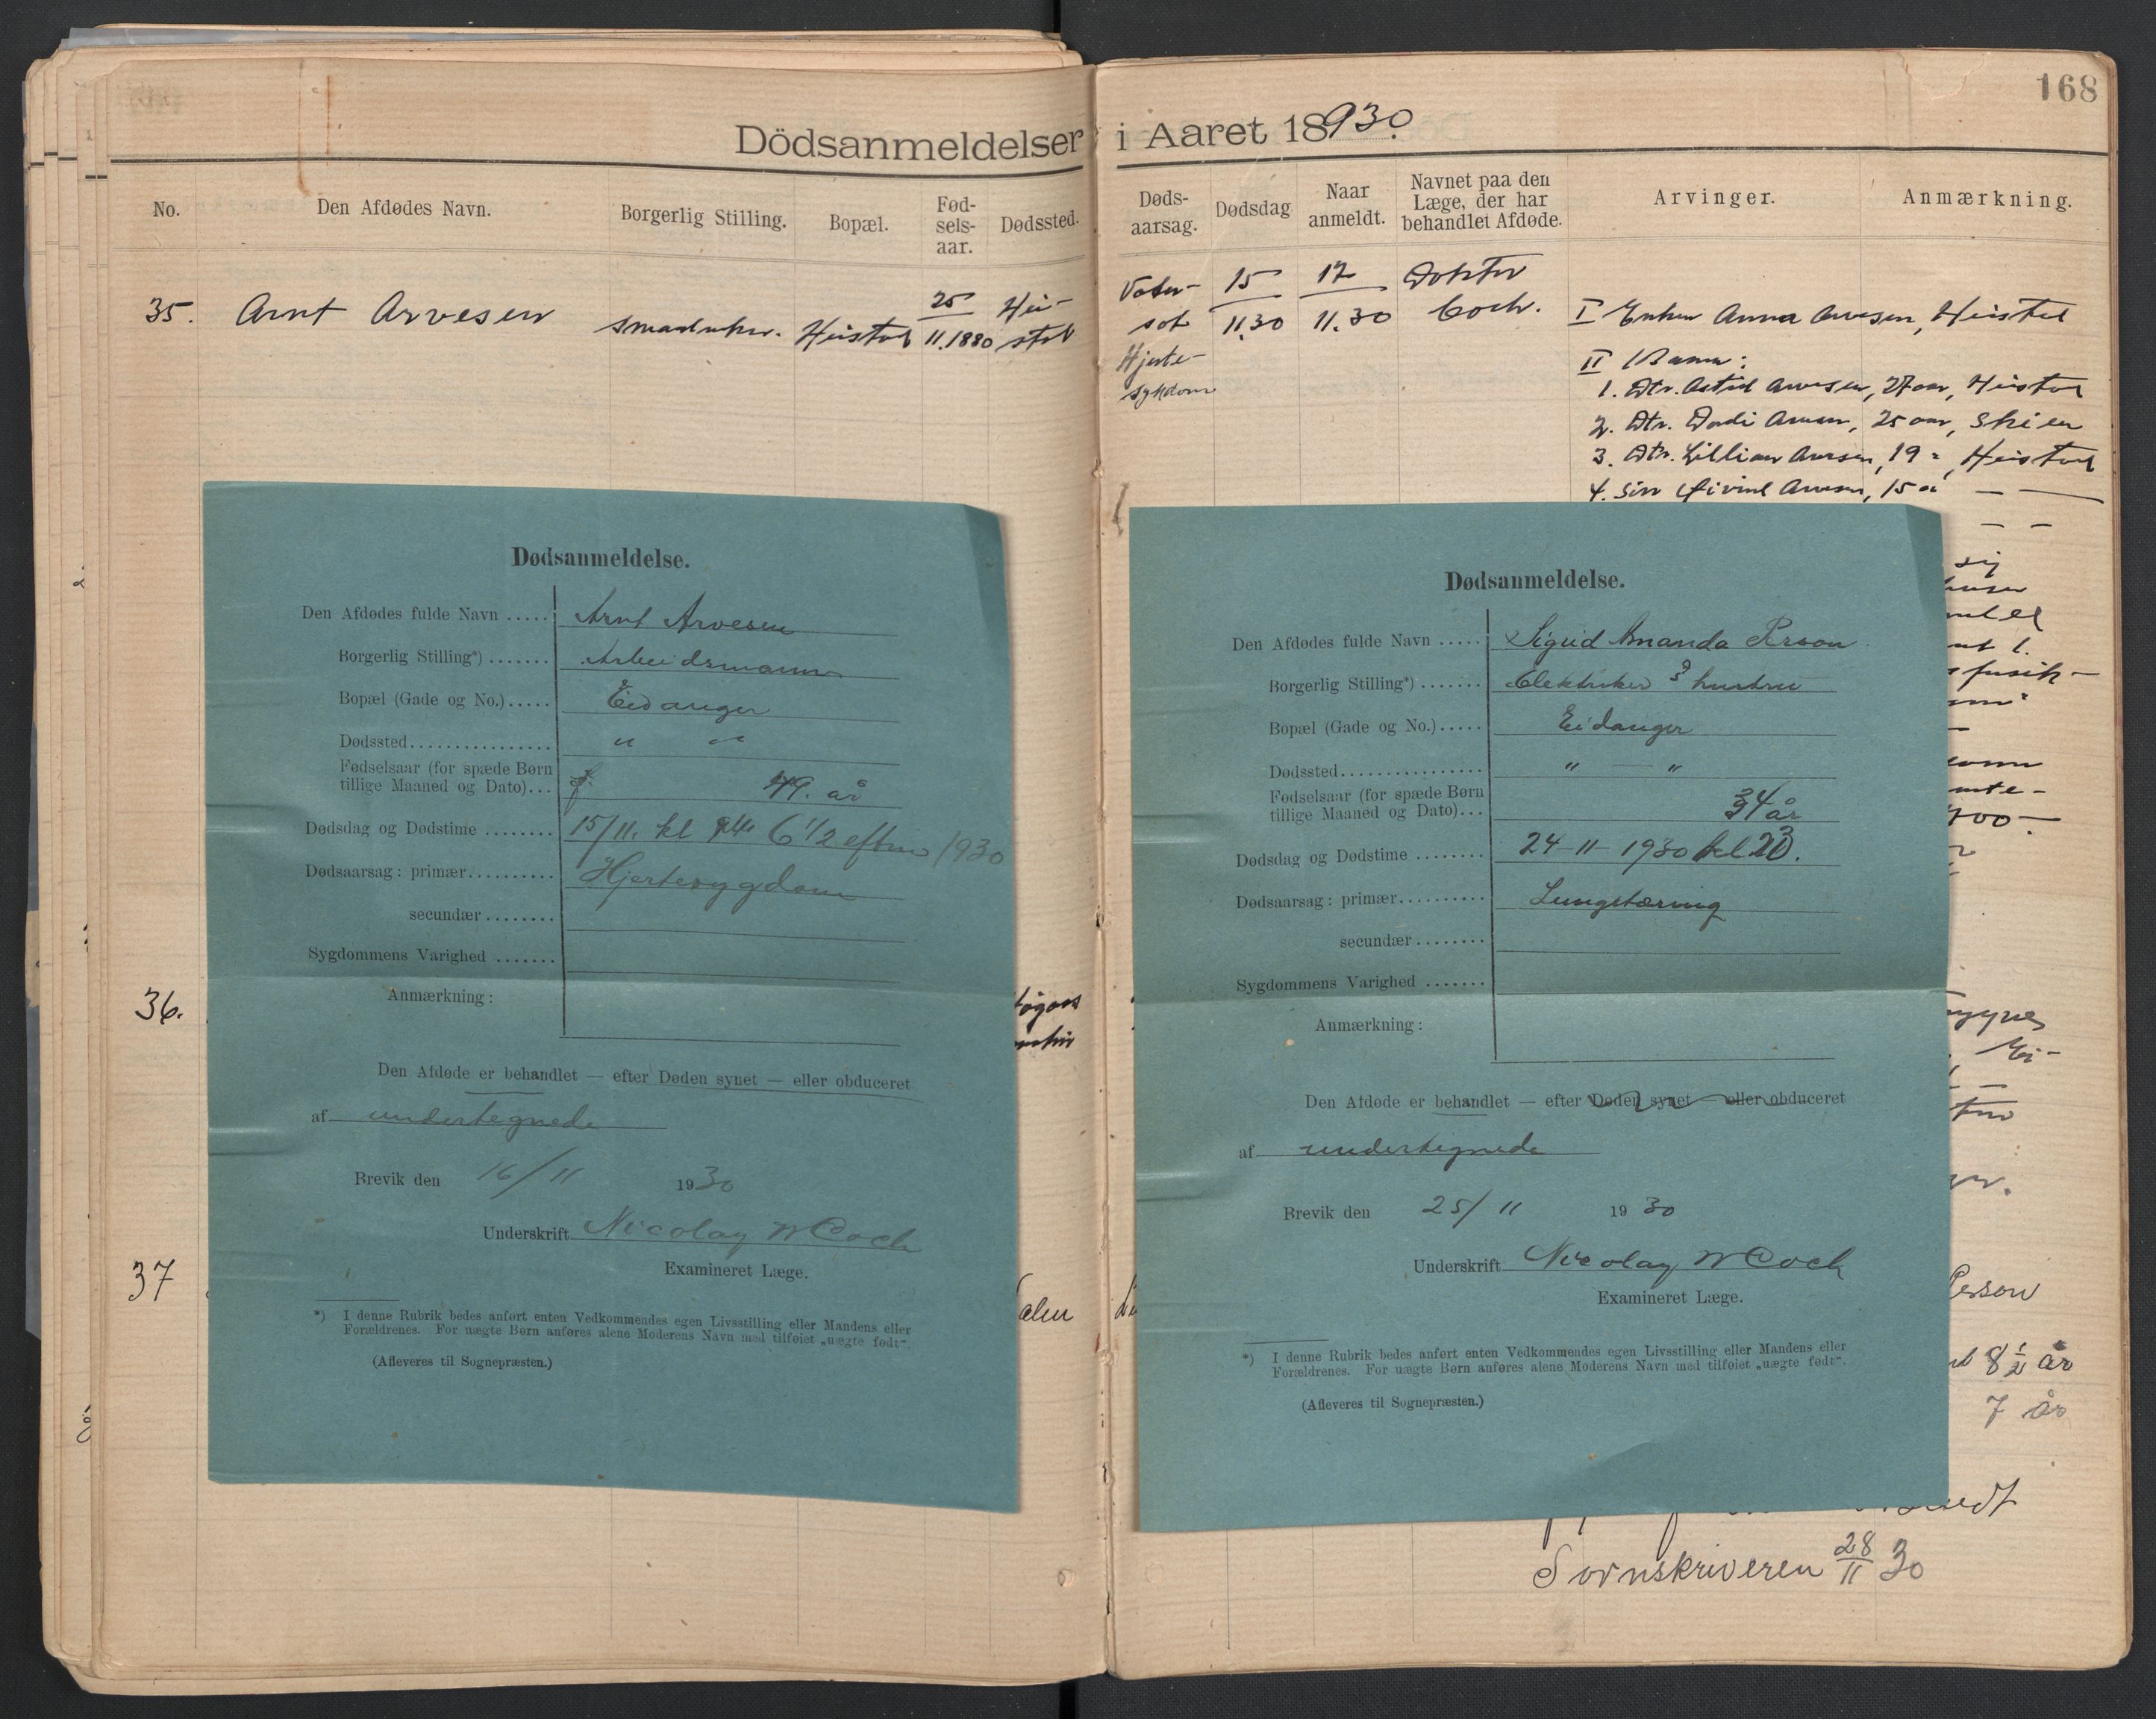 168
Dödsanmeldelser i Aaret 18930.
No.
Den Afdødes Navn.
Borgerlig Stilling.
Bopæl.
Fød-
sels-
aar.
Dødssted.
Døds-
aarsag.
Dødsdag
Naar
anmeldt.
Navnet paa den
Læge, der har
behandlet Afdøde.
Arvinger.
Anmærkning.
35. Arnt Arvesen
Heistad
25
11.1880
Hei-
stad
Vater-
sot
Hjerte-
sykdom
15
11.30
17
11.30
Doktor
Coch.
I Enken Anna Arvesen, Heistad
II Barn:
1. Dtr. Astrid Arvesen, 27 aar, Heistad
2. Dtr. Arvesen, 25 aar, Skien
3. Dtr. Lillian Arvesen, 19 " Heistad
4. Søn Øivind Arvesen, 15 " —
Dødsanmeldelse.
Den Afdødes fulde Navn ..... Arnt Arvesen
Borgerlig Stilling*) ....... Arbeidsmann
Bopæl (Gade og No.)..... Eidanger
Dødssted................ " "
Fødselsaar (for spæde Børn
tillige Maaned og Dato)... f. 49. år
Dødsdag og Dødstime ........ 15/11. kl 6 1/2 efterm 1930
Dødsaarsag: primær.......... Hjertesygdom
secundær ........
Sygdommens Varighed .......
Anmærkning:
Den Afdøde er behandlet — efter Døden synet — eller obduceret
af undertegnede
Brevik den 16/11 1930
Underskrift Nicolay W Coch
Examineret Læge.
*) I denne Rubrik bedes anført enten Vedkommendes egen Livsstilling eller Mandens eller
Forældrenes. For uægte Børn anføres alene Moderens Navn med tilføiet „uægte født".
(Afleveres til Sognepræsten.)
Dødsanmeldelse.
Den Afdødes fulde Navn ..... Sigrid Amanda Person
Borgerlig Stilling*) ....... Elektriker s hustru
Bopæl (Gade og No.)..... Eidanger
Dødssted................ " — "
Fødselsaar (for spæde Børn
tillige Maaned og Dato)... 34 år
Dødsdag og Dødstime ........ 24-11-1930 kl 23.
Dødsaarsag: primær.......... Lungetæring
secundær ........
Sygdommens Varighed .......
Anmærkning:
Den Afdøde er behandlet — efter Døden synet — eller obduceret
af undertegnede
Brevik den 25/11 1930
Underskrift Nicolay W Coch
Examineret Læge.
*) I denne Rubrik bedes anført enten Vedkommendes egen Livsstilling eller Mandens eller
Forældrenes. For uægte Børn anføres alene Moderens Navn med tilføiet „uægte født".
(Afleveres til Sognepræsten.)
sig
36.
37
Person
8 1/2 år
7 år
Sornskriveren 28/11 30